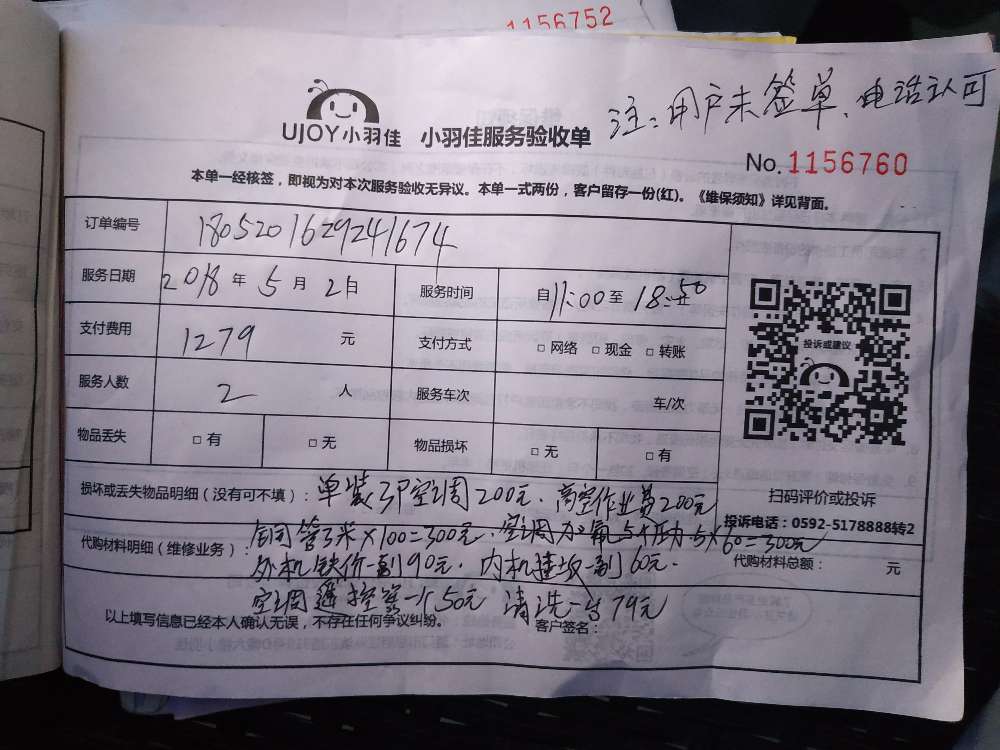 1156752
注：用户未签单、电话认可
UJOY小羽佳 小羽佳服务验收单
No. 1156760
本单一经核签，即视为对本次服务验收无异议。本单一式两份，客户留存一份(红)。《维保须知》详见背面。
订单编号 1805201629241674
服务日期 2018年5月2日 服务时间 自11:00至18:50
支付费用 1279元 支付方式 □ 网络 □ 现金 □ 转账
投诉或建议
服务人数 2人 服务车次 车/次
物品丢失 □ 有 □ 无 物品损坏 □ 无 □ 有
扫码评价或投诉
损坏或丢失物品明细（没有可不填）：单装3P空调200元、高空作业费200元
投诉电话：0592-5178888转2
铜管3米×100=300元、空调加氟 5×60=300元
代购材料明细（维修业务）： 代购材料总额： 元
外机铁价一副90元、内机挂板一副60元、
空调遥控器一个50元 清洗一台79元
以上填写信息已经本人确认无误，不存在任何争议纠纷。 客户签名：